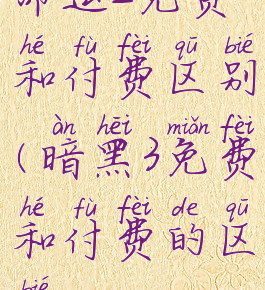 命运2免费
hé fù fèi qū bié
和付费区别
àn hēi miǎn fèi
(暗黑3免费
hé fù fèi de qū
和付费的区
bié